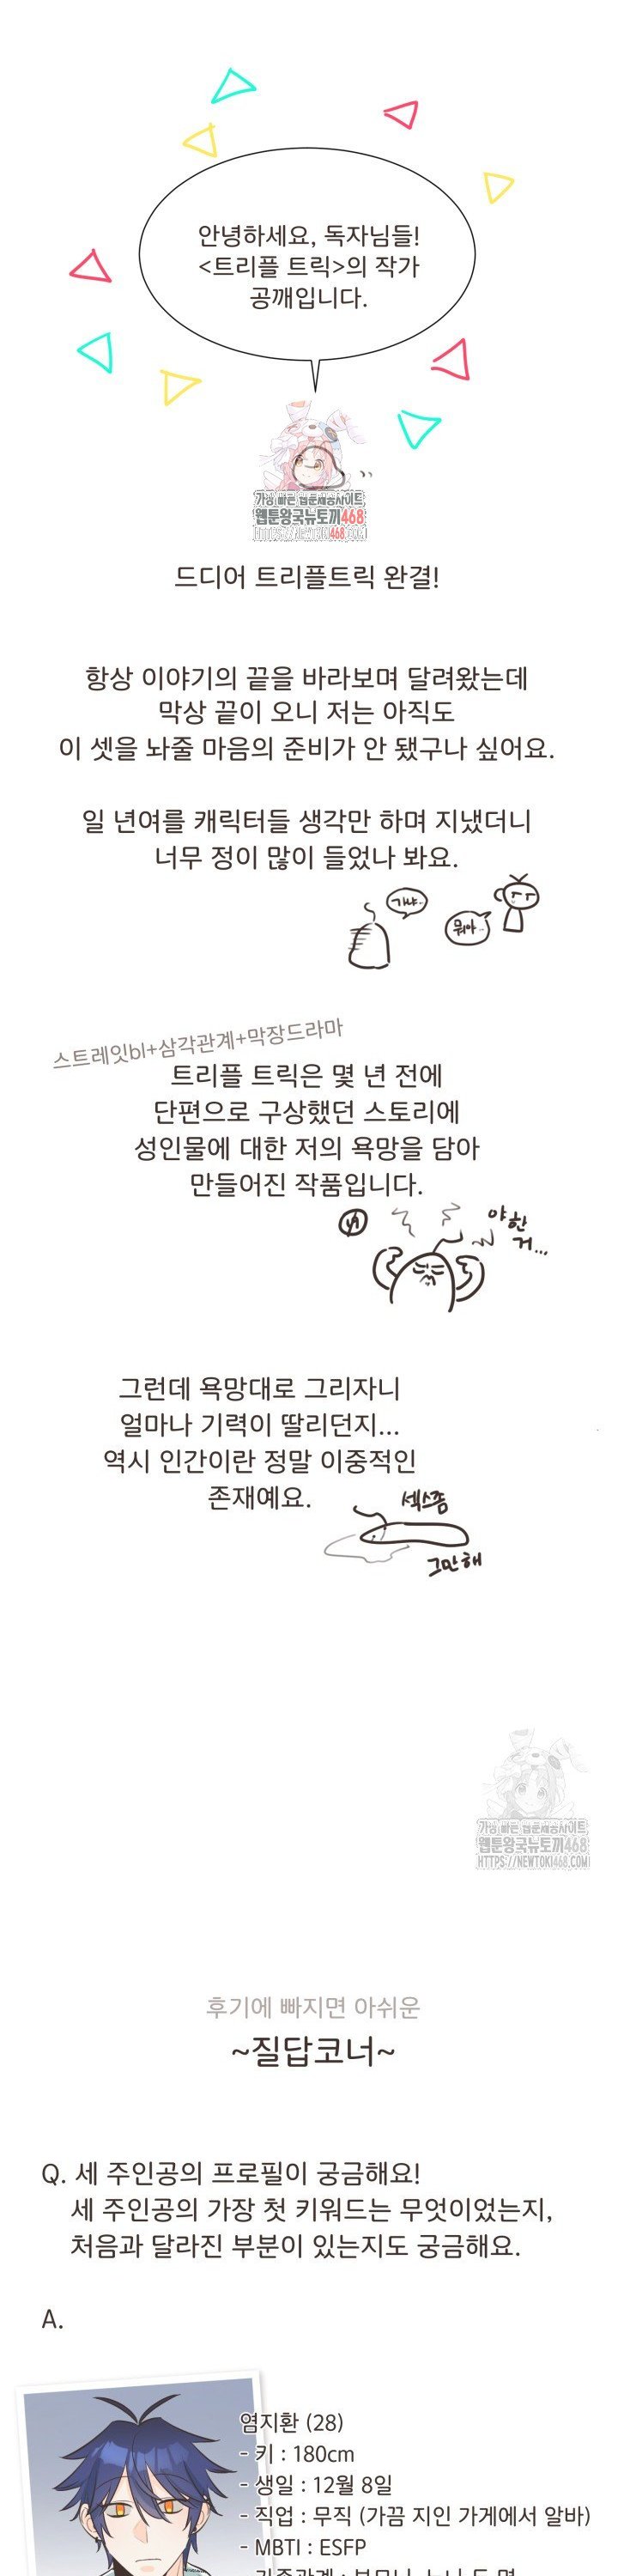 안녕하세요, 독자님들!
<트리플 트릭>의 작가
공깨입니다.
가장 빠른 웹툰제공사이트
웹툰왕국뉴토끼468
HTTPS://NEWTOKI468.COM
드디어 트리플트릭 완결!
항상 이야기의 끝을 바라보며 달려왔는데
막상 끝이 오니 저는 아직도
이 셋을 놔줄 마음의 준비가 안 됐구나 싶어요.
일 년여를 캐릭터들 생각만 하며 지냈더니
너무 정이 많이 들었나 봐요.
가냐..
뭐야..
스트레잇bl+삼각관계+막장드라마
트리플 트릭은 몇 년 전에
단편으로 구상했던 스토리에
성인물에 대한 저의 욕망을 담아
만들어진 작품입니다.
야한
거...
그런데 욕망대로 그리자니
얼마나 기력이 딸리던지...
역시 인간이란 정말 이중적인
존재예요.
섹스좀
그만해
가장 빠른 웹툰제공사이트
웹툰왕국뉴토끼468
HTTPS://NEWTOKI468.COM
후기에 빠지면 아쉬운
~질답코너~
Q. 세 주인공의 프로필이 궁금해요!
세 주인공의 가장 첫 키워드는 무엇이었는지,
처음과 달라진 부분이 있는지도 궁금해요.
A.
염지환 (28)
- 키 : 180cm
- 생일 : 12월 8일
- 직업 : 무직 (가끔 지인 가게에서 알바)
- MBTI : ESFP